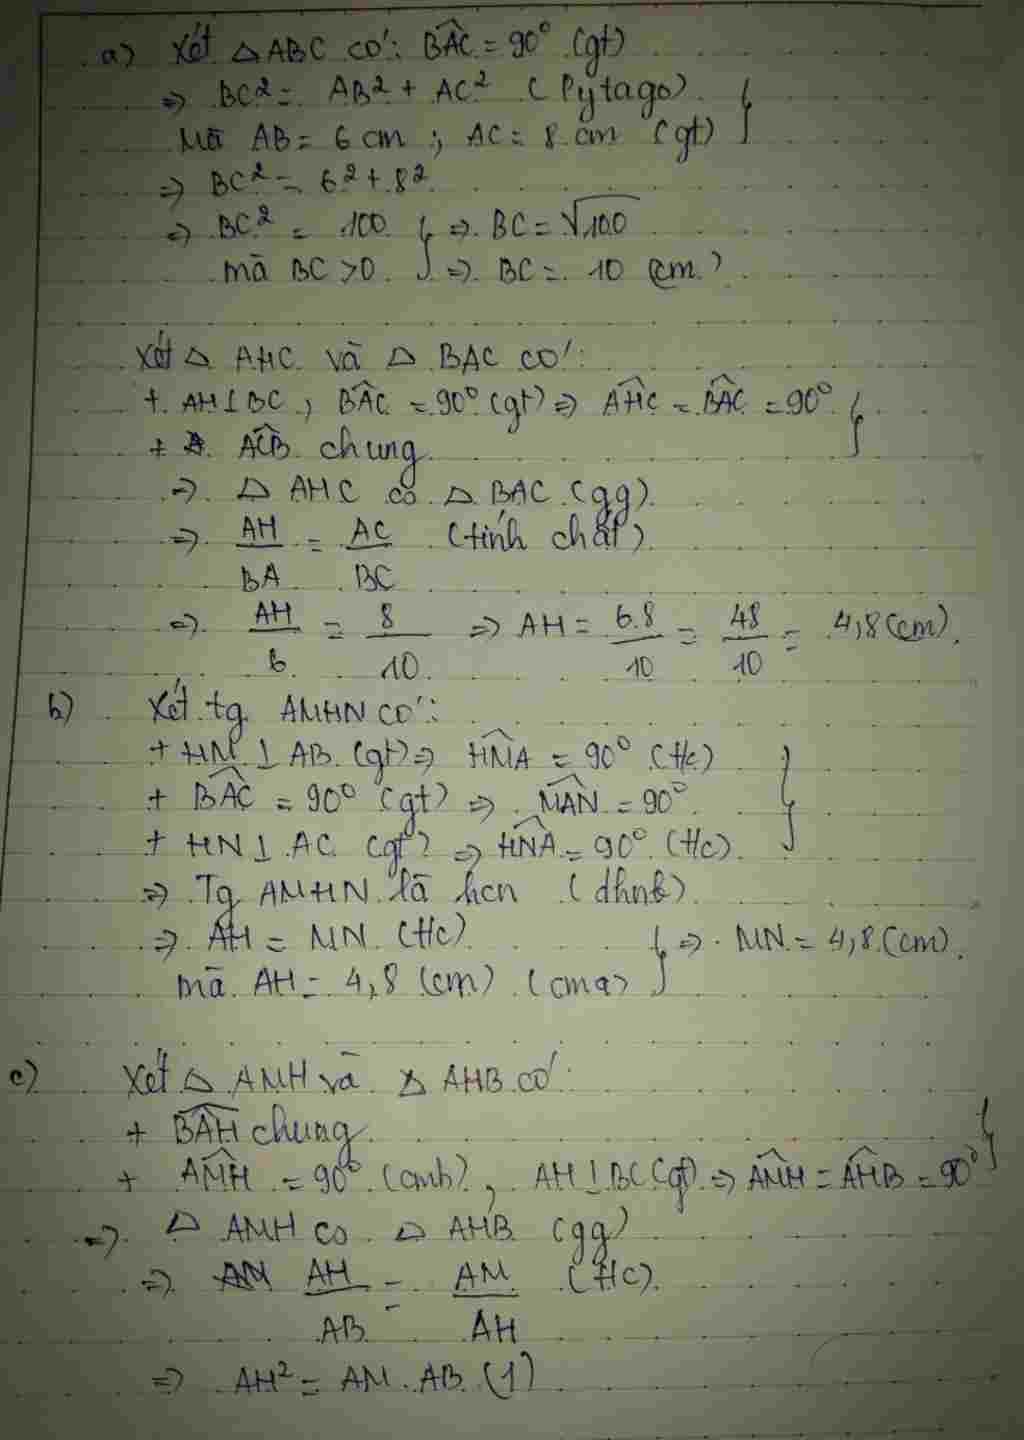 a) Xét △ABC có: BAC^ = 90° (gt)
=> BC² = AB² + AC² (Pytago) }
Mà AB = 6 cm ; AC = 8 cm (gt)
=> BC² = 6² + 8²
=> BC² = 100 } => BC = √100
mà BC > 0 => BC = 10 (cm)
Xét △ AHC và △ BAC có:
+ AH ⊥ BC, BAC^ = 90° (gt) => AHC^ = BAC^ = 90° }
+ ACB^ chung
=> △ AHC ∽ △ BAC (gg)
=> AH/BA = AC/BC (tính chất)
=> AH/6 = 8/10 => AH = 6.8/10 = 48/10 = 4,8 (cm).
b) Xét tg AMHN có:
+ HM ⊥ AB (gt) => HMA^ = 90° (t/c)
+ BAC^ = 90° (gt) => MAN^ = 90° }
+ HN ⊥ AC (gt) => HNA^ = 90° (t/c)
=> Tg AMHN là hcn (dhnb)
=> AH = MN (t/c) } => MN = 4,8 (cm).
mà AH = 4,8 (cm) (cma)
c) Xét △ AMH và △ AHB có:
+ BAH^ chung }
+ AMH^ = 90° (cmb), AH ⊥ BC (gt) => AMH^ = AHB^ = 90°
=> △ AMH ∽ △ AHB (gg)
=> AH/AB = AM/AH (t/c)
=> AH² = AM . AB (1)